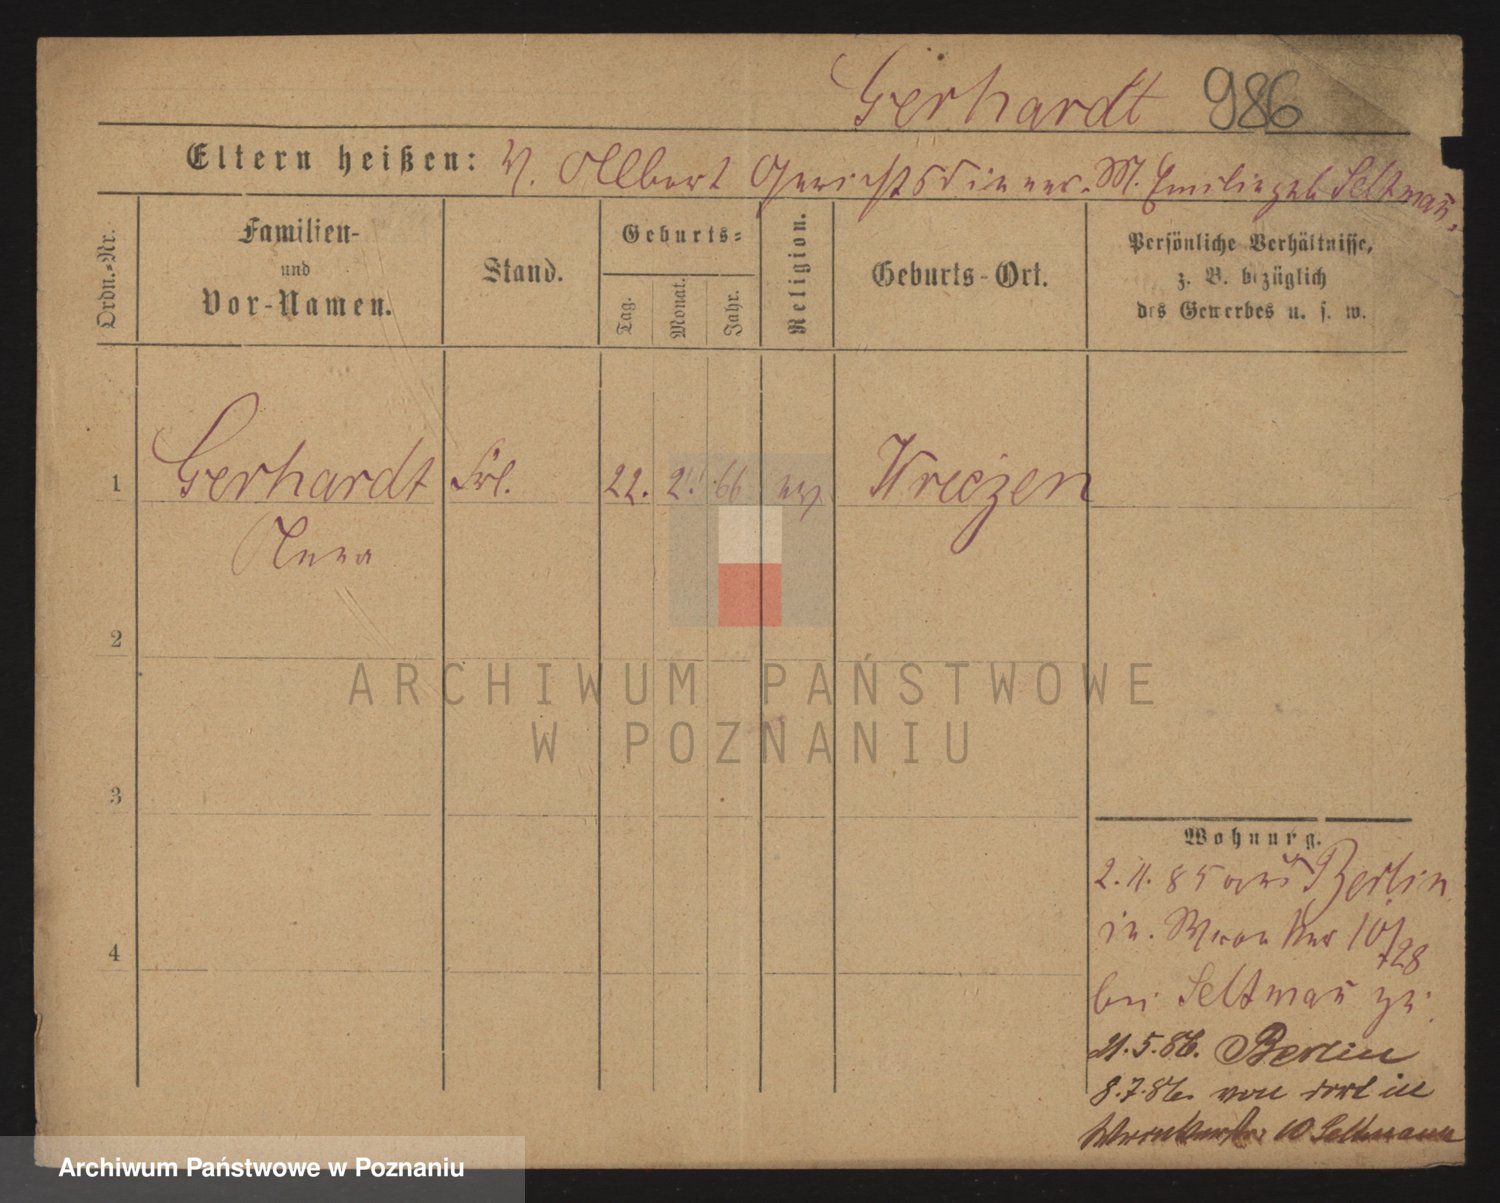 Gerhardt 986
Eltern heißen: V. Albert Gerichtsdiener. M. Emilie geb Seltmañ.
Ordn.-Nr.
Familien-
und
Vor-Namen.
Stand.
Geburts-
Tag.
Monat.
Jahr.
Religion.
Geburts-Ort.
Persönliche Verhältnisse,
z. B. bezüglich
des Gewerbes u. s. w.
1 Gerhardt Frl. 22. 2. 66 ev Wriezen
Anna
2
3
4
Wohnung.
2.11.85 aus Berlin
in. Wronker 10/28
bei Seltmañ zu.
21.5.86. Berlin
8.7.86. von dort in
Wronkerstr. 10 Seltmann
ARCHIWUM PAŃSTWOWE
W POZNANIU
Archiwum Państwowe w Poznaniu